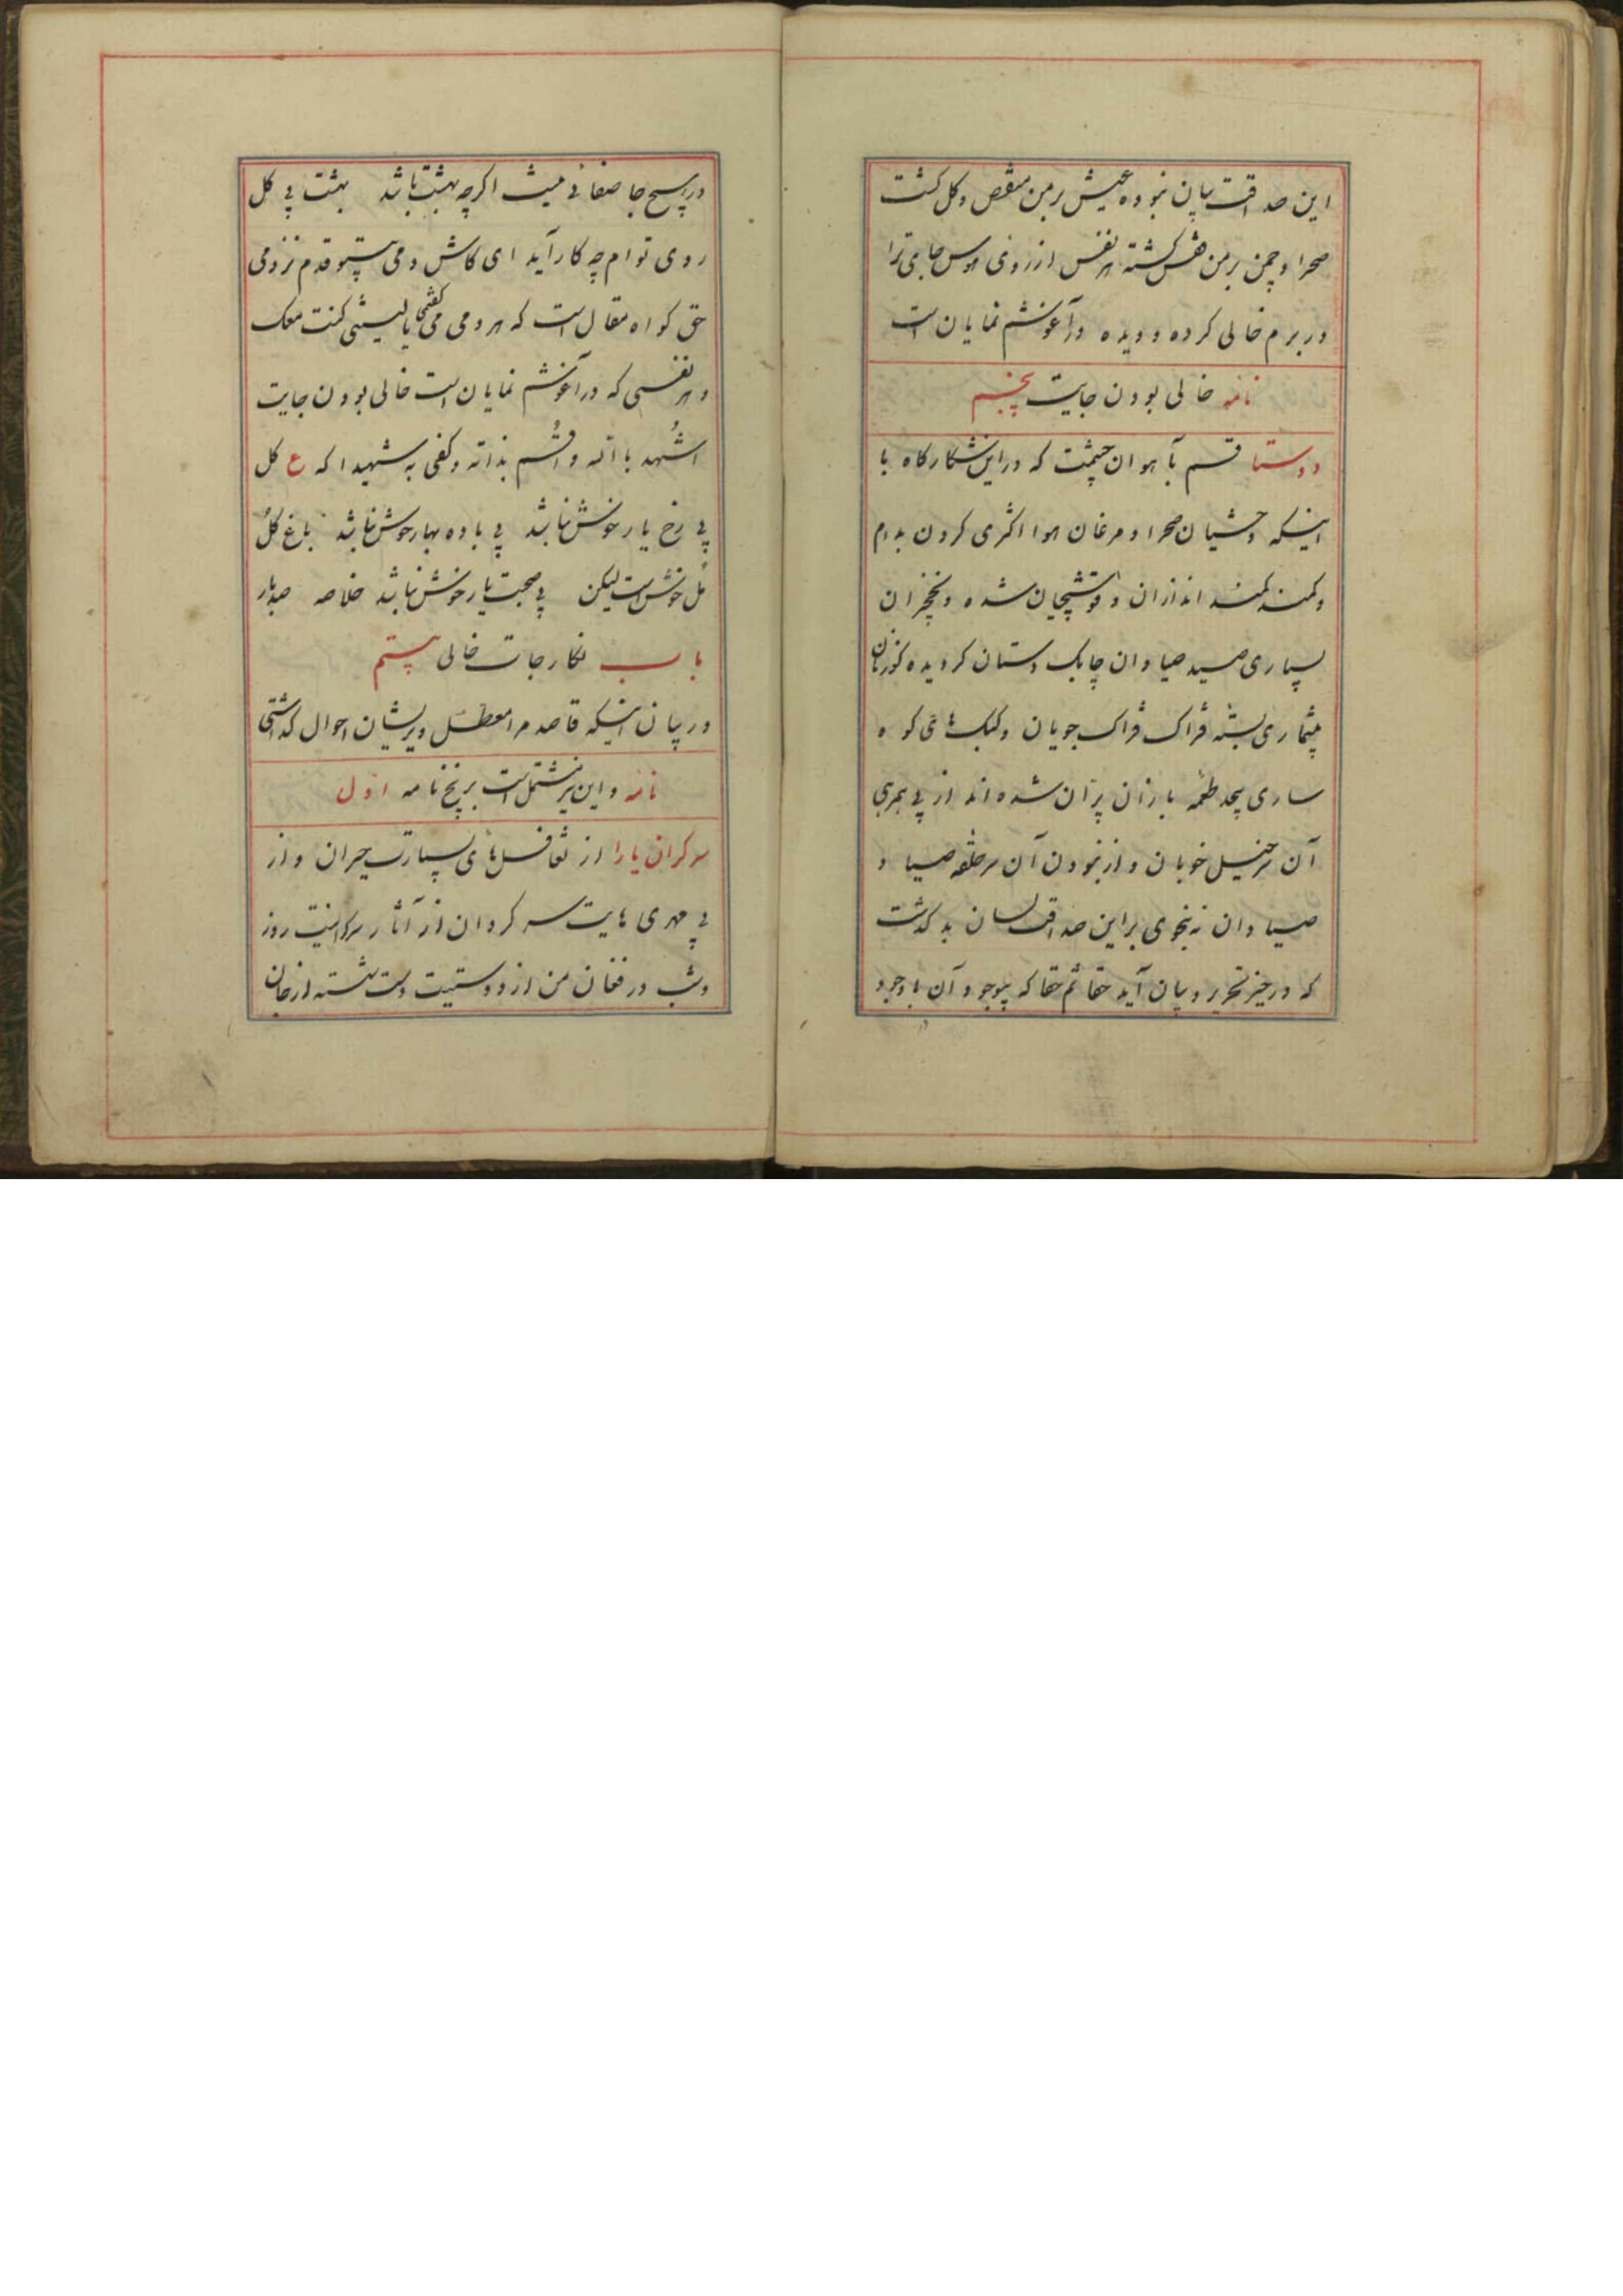 این صداقت بیان نبوده عیش بر من منغص و گل گشت
صحرا و چمن بر من قفس گشته هر نفس از روی هوس جای ترا
در برم خالی کرده و دیده در آغوشم نمایان است
نامه خالی بودن جایت پنجم
دوستا قسم بآهوان چشمت که در این شکارگاه با
اینکه وحشیان صحرا و مرغان هوا اکثری گردن بدام
و کمند کمند اندازان و قوشچیان شده و نخچیران
بسیاری صید صیادان چابک دستان گردیده گوزنان
بیشماری بسته فتراک فتراک جویان و کبک های کوه
ساری بیحد طعمه بازان پران شده اند از بی همرهی
آن سرخیل خوبان و از نبودن آن سر حلقه صیاد
صیادان نه بنحوی بر این صداقت لسان بد گذشت
که در حیز تحریر و بیان آید حقا ثم حقا که بیوجود آن باوجود
در هیچ جا صفائی نیست اگر چه بهشت باشد بهشت بی گل
روی توام چه کار آید ای کاش دمی بیتو قدم نزدمی
حق گواه مقال است که هر دمی می گفتمی یا لیتنی کنت معک
و هر نفسی که در آغوشم نمایان است خالی بودن جایت
اشهد بالله و اقسم بذاته و کفی به شهیدا که ع گل
بی رخ یار خوش نباشد بی باده بهار خوش نباشد باغ گل
مل خوش است لیکن بی صحبت یار خوش نباشد خلاصه صد بار
باب نگار جات خالی بیستم
در بیان اینکه قاصد مرا معطل و پریشان احوال گذاشتی
نامه و این نیز مشتمل است بر پنج نامه اول
سر گران یارا از تغافلهای بسیارت حیران و از
بی مهری هایت سر گردان از آثار سرگرانیت روز
و شب در فغان من از دوستیت دست شسته از جان